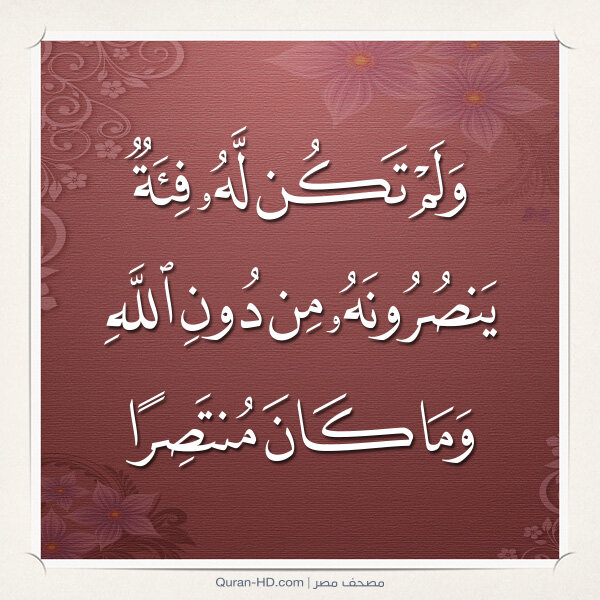 وَلَمْ تَكُن لَّهُۥ فِئَةٌ
يَنصُرُونَهُۥ مِن دُونِ ٱللَّهِ
وَمَا كَانَ مُنتَصِرًا
Quran-HD.com | مصحف مصر